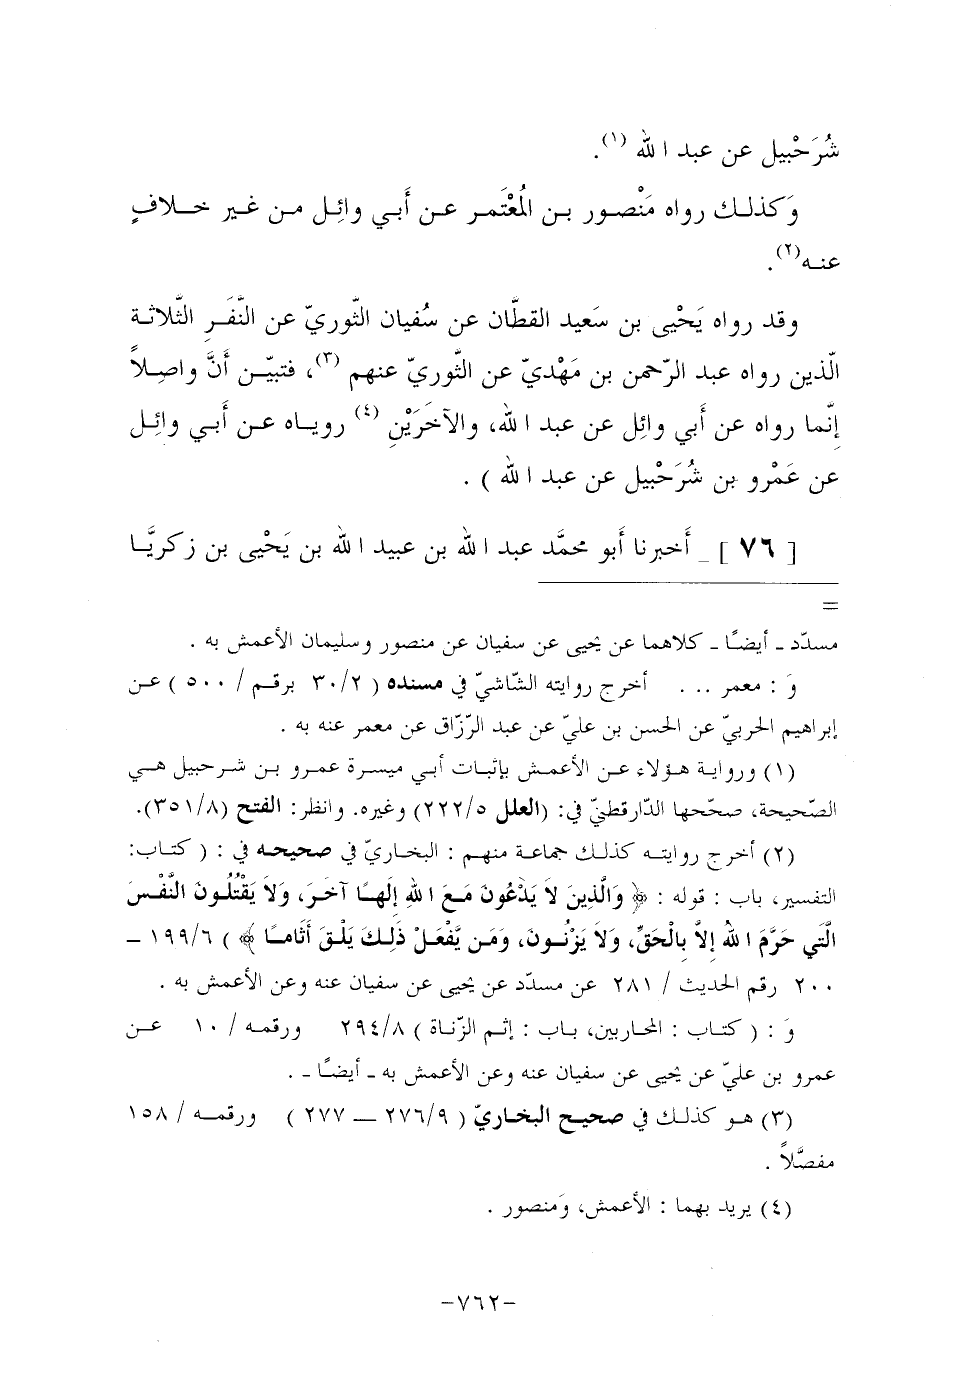 شُرَحْبيل عن عبد الله (١).
وَكذلك رواه مَنْصور بن المُعْتَمر عن أَبي وائِل من غير خلافٍ
عنه(٢).
وقد رواه يَحْيى بن سَعيد القطَّان عن سُفيان الثَّوريّ عن النَّفَرِ الثَّلاثة
الَّذين رواه عبد الرَّحمن بن مَهْديّ عن الثَّوري عنهم (٣)، فتبيّن أَنَّ واصِلاً
إِنَّما رواه عن أَبي وائل عن عبد الله، والآخَرَيْنِ (٤) روياه عن أَبي وائِل
عن عَمْرو بن شُرَحْبيل عن عبد الله ) .
[ ٧٦ ] _ أَخبرنا أَبو محمَّد عبد الله بن عبيد الله بن يَحْيى بن زكريَّا
=
مسدّد - أيضًا - كلاهما عن يحيى عن سفيان عن منصور وسليمان الأعمش به .
وَ : معمر .. . أخرج روايته الشّاشيّ في مسنده ( ٣٠/٢ برقم / ٥٠٠ ) عن
إبراهيم الحربيّ عن الحسن بن عليّ عن عبد الرّزّاق عن معمر عنه به .
(١) ورواية هؤلاء عن الأعمش بإثبات أبي ميسرة عمرو بن شرحبيل هي
الصّحيحة، صحّحها الدّارقطنيّ في: (العلل ٢٢٢/٥) وغيره. وانظر: الفتح (٣٥١/٨).
(٢) أخرج روايته كذلك جماعة منهم : البخاريّ في صحيحه في : ( كتاب:
التفسير، باب : قوله : ﴿ وَالَّذِينَ لاَ يَدْعُونَ مَعَ اللهِ إِلَهًا آخَرَ، وَلاَ يَقْتُلُونَ النَّفْسَ
الَّتِي حَرَّمَ اللهُ إِلاَّ بِالْحَقِّ، وَلاَ يَزْنُونَ، وَمَن يَّفْعَلْ ذَلِكَ يَلْقَ أَثَامًا ﴾ ) ١٩٩/٦ –
٢٠٠ رقم الحديث / ٢٨١ عن مسدّد عن يحيى عن سفيان عنه وعن الأعمش به .
وَ : ( كتاب : المحاربين، باب : إثم الزّناة ) ٢٩٤/٨ ورقمه / ١٠ عن
عمرو بن عليّ عن يحيى عن سفيان عنه وعن الأعمش به - أيضًا - .
(٣) هو كذلك في صحيح البخاريّ ( ٢٧٦/٩ — ٢٧٧ ) ورقمه / ١٥٨
مفصَّلاً .
(٤) يريد بهما : الأعمش، وَمنصور .
-٧٦٢-